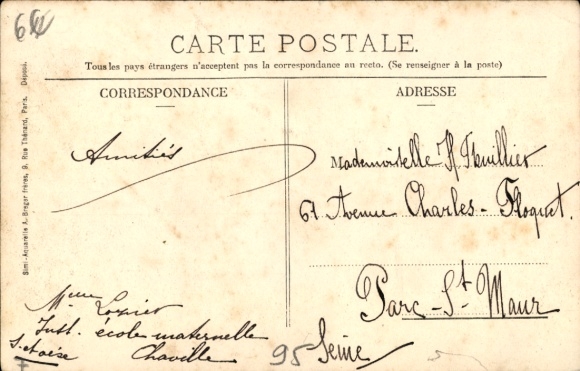 64
CARTE POSTALE.
Tous les pays étrangers n'acceptent pas la correspondance au recto. (Se renseigner à la poste)
CORRESPONDANCE
ADRESSE
Simi-Aquarelle A. Breger frères, 9, Rue Thénard, Paris. Déposé.
Amitiés
Mademoiselle H. Thuillier
67 Avenue Charles-Floquet.
Parc-St Maur
Seine
95
Mme Lozier
Inst. école maternelle
Chaville
S. et oise